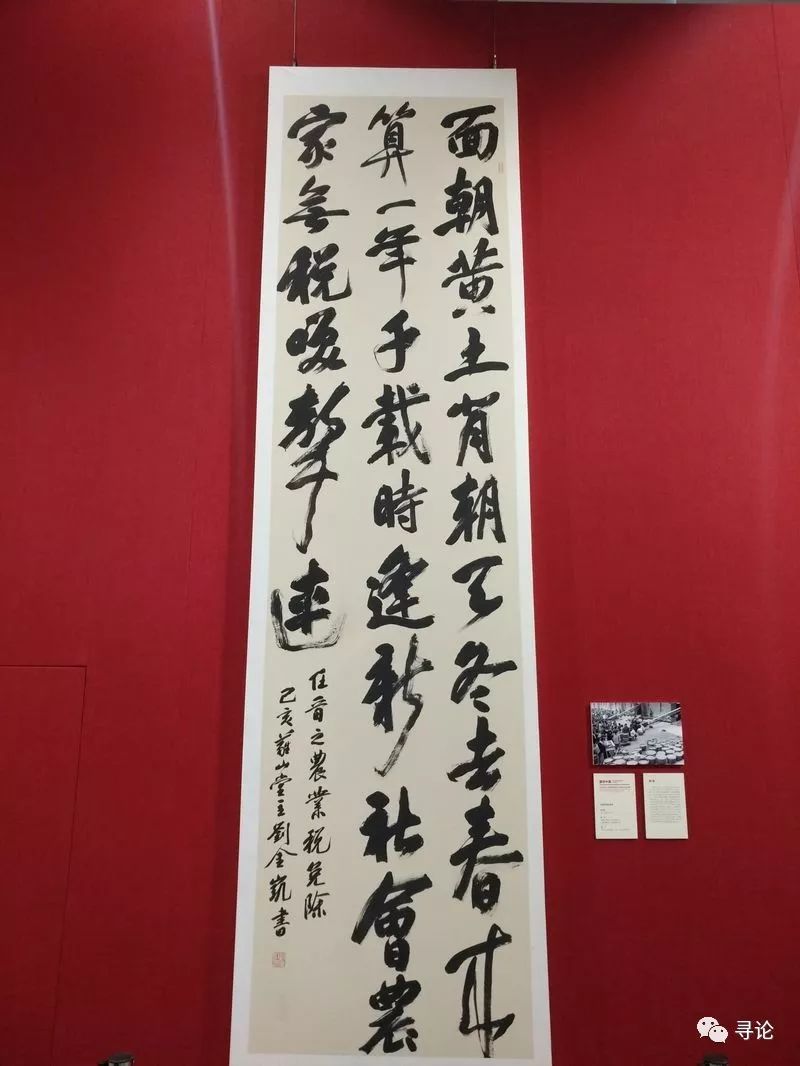 面朝黄土背朝天冬去春来
算一年千載時逢新社會農
家無税聲連
任之農業税免除
己亥山堂主劉金凱書
寻论